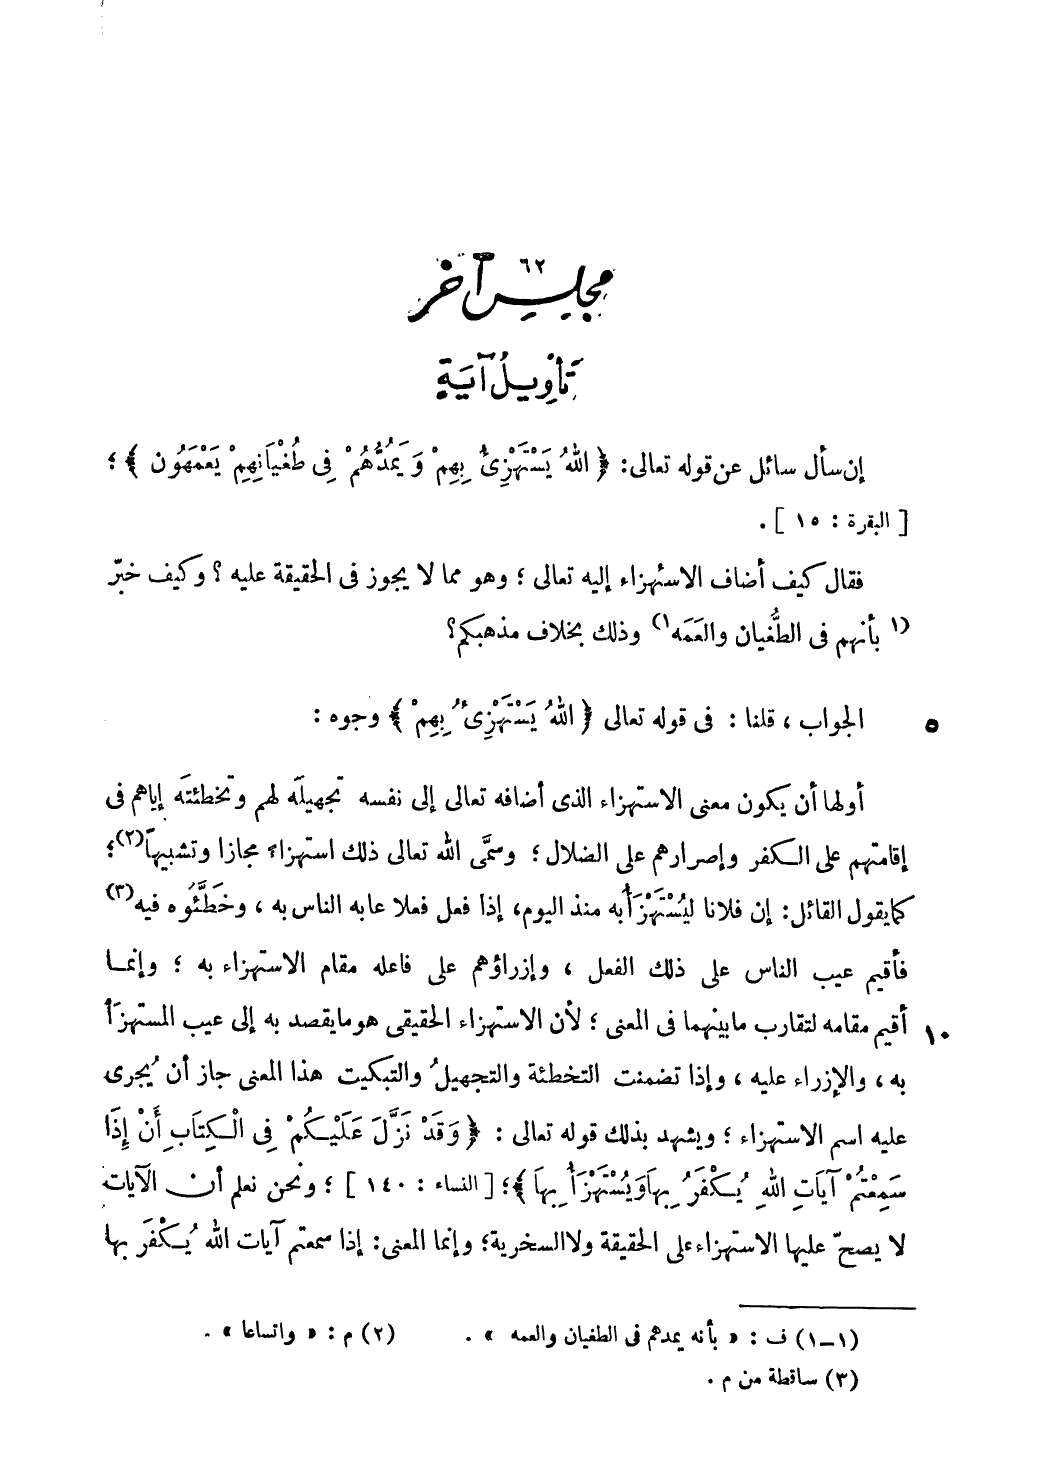 ٦٢
مجلس آخر
تأويل آية
إن سأل سائل عن قوله تعالى: ﴿ اللهُ يَسْتَهْزِئُ بِهِمْ وَيَمُدُّهُمْ فِى طُغْيَانِهِمْ يَعْمَهُون ﴾؛
[ البقرة : ١٥ ] .
فقال كيف أضاف الاستهزاء إليه تعالى ؛ وهو مما لا يجوز فى الحقيقة عليه ؟ وكيف خبّر
(١ بأنهم فى الطُّغيان والعَمَه ١) وذلك بخلاف مذهبكم؟
الجواب ، قلنا : فى قوله تعالى ﴿ اللهُ يَسْتَهْزِئُ بِهِمْ ﴾ وجوه :
٥
أولها أن يكون معنى الاستهزاء الذى أضافه تعالى إلى نفسه تجهيلَه لهم وتخطئتَه إياهم فى
إقامتهم على الكفر وإصرارهم على الضلال ؛ وسمَّى الله تعالى ذلك استهزاء مجازا وتشبيهاً(٢)؛
كما يقول القائل: إن فلانا ليُسْتَهْزَأُ به منذ اليوم، إذا فعل فعلا عابه الناس به ، وخَطَّئُوه فيه(٣)
فأقيم عيب الناس على ذلك الفعل ، وإزراؤهم على فاعله مقام الاستهزاء به ؛ وإنما
أقيم مقامه لتقارب ما بينهما فى المعنى ؛ لأن الاستهزاء الحقيقى هو ما يقصد به إلى عيب المستهزَأ
١٠
به ، والإزراء عليه ، وإذا تضمنت التخطئة والتجهيلُ والتبكيت هذا المعنى جاز أن يُجرى
عليه اسم الاستهزاء ؛ ويشهد بذلك قوله تعالى : ﴿ وَقَدْ نَزَّلَ عَلَيْكُمْ فِى الْكِتَابِ أَنْ إِذَا
سَمِعْتُمْ آيَاتِ اللهِ يُكْفَرُ بِهَا وَيُسْتَهْزَأُ بِهَا ﴾؛ [ النساء : ١٤٠ ] ؛ ونحن نعلم أن الآيات
لا يصحّ عليها الاستهزاء على الحقيقة ولا السخرية؛ وإنما المعنى: إذا سمعتم آيات الله يُكْفَر بها
(١-١) ف : « بأنه يمدهم فى الطغيان والعمه » . (٢) م : « واتساعا » .
(٣) ساقطة من م .